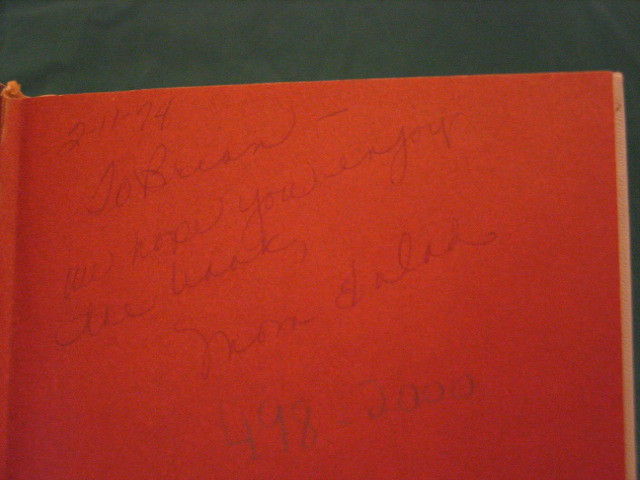 2-11-74
To Brian -
we hope you enjoy
the book,
Mom & dad
498-2000